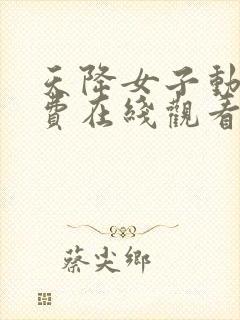 天降女子動
費在綫觀看
蔡尖鄉